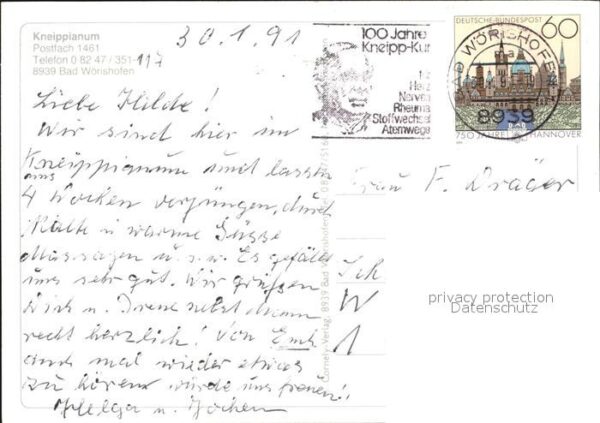 Kneippianum
Postfach 1461
Telefon 0 82 47 / 351-117
8939 Bad Wörishofen
30.1.91
100 Jahre
Kneipp-Kur
für
Herz
Nerven
Rheuma
Stoffwechsel
Atemwege
DEUTSCHE BUNDESPOST 60
BAD WÖRISHOFEN
8939
750 JAHRE HANNOVER
Liebe Hilde!
Wir sind hier im
Kneippianum und lassen
uns
4 Wochen verjüngen, durch
Kalte u warme Güsse
Massagen u.s.w. Es gefällt
uns sehr gut. Wir grüßen
Dich u. Irene nebst
recht herzlich! Von Euch
auch mal wieder etwas
zu hören würde uns freuen!
Helga u. Jochen
Frau F. Dräger
W
1
Cornely-Verlag, 8939 Bad Wörishofen
privacy protection
Datenschutz